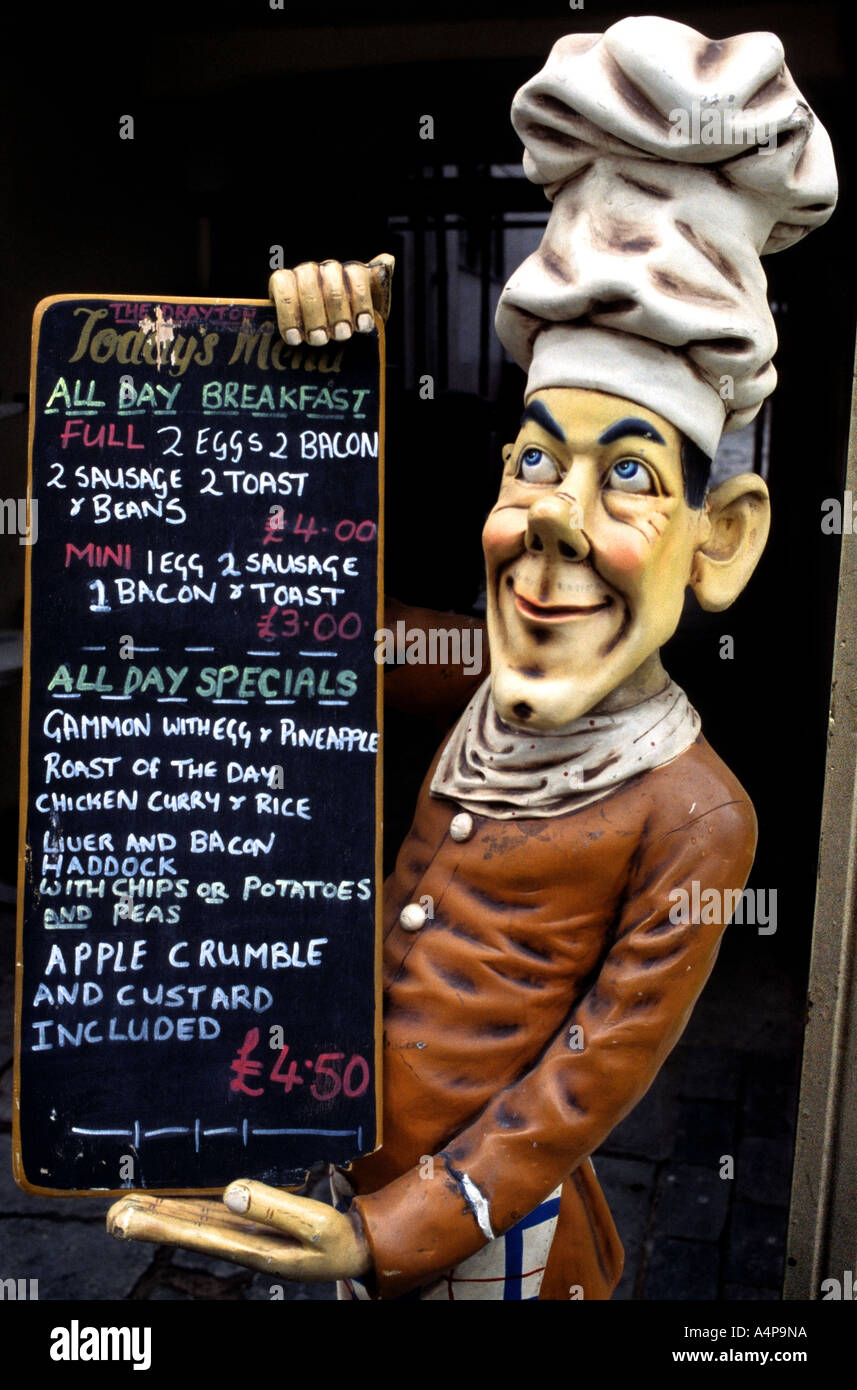 THE DRAYTON
Today's Menu
ALL DAY BREAKFAST
FULL 2 EGGS 2 BACON
2 SAUSAGE 2 TOAST
& BEANS
£4.00
MINI 1 EGG 2 SAUSAGE
1 BACON & TOAST
£3.00
ALL DAY SPECIALS
GAMMON WITH EGG & PINEAPPLE
ROAST OF THE DAY
CHICKEN CURRY & RICE
LIVER AND BACON
HADDOCK
WITH CHIPS OR POTATOES
AND PEAS
APPLE CRUMBLE
AND CUSTARD
INCLUDED
£4.50
alamy stock photo
A4P9NA
www.alamy.com